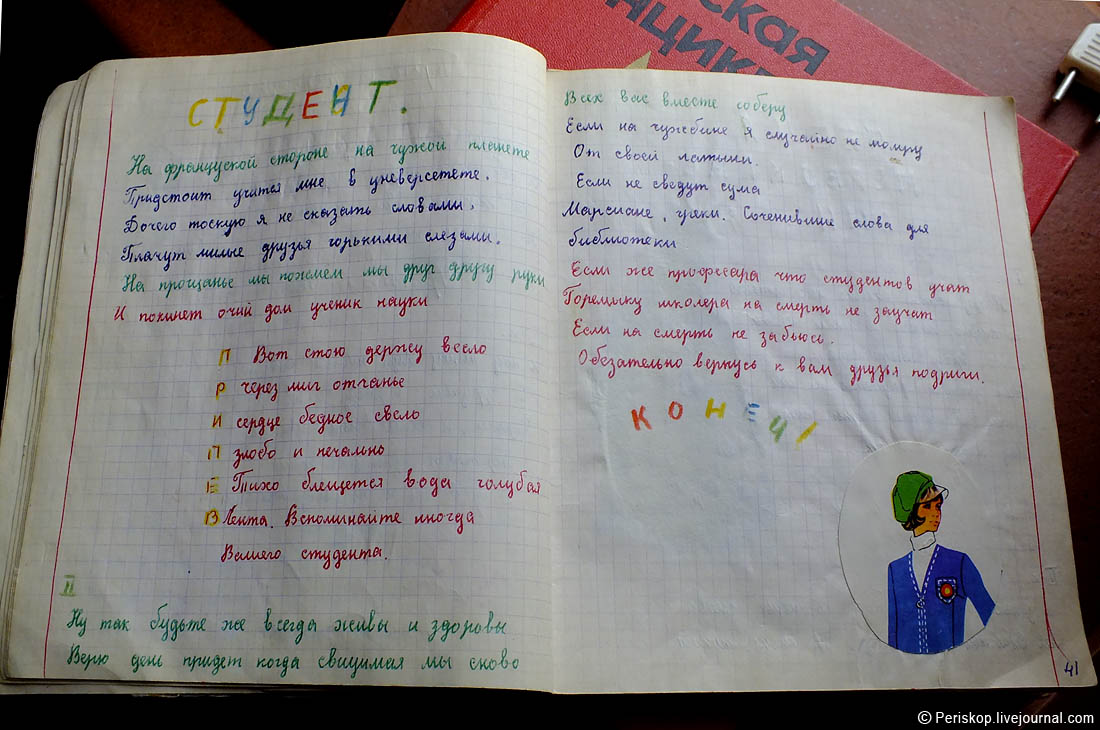 СТУДЕНТ.
На француской стороне на чужой планете
Придстоит учится мне в уневерсетете.
Дочего тоскую я не сказать словами,
Плачут милые друзья горькими слезами.
На прощанье мы пожмем мы друг другу руки
И покинет очий дом ученик науки
ПРИПЕВ
Вот стою держу весло
через миг отчанье
сердце бедное свело
злобо и печально
Тихо блещется вода голубая
Лента. Вспоминайте иногда
Вашего студента.
II
Ну так будьте же всегда живы и здоровы
Верю день придет когда свицимая мы сково
Всех вас вместе соберу
Если на чужбине я случайно не помру
От своей латыни.
Если не сведут сума
Марсиане, греки. Соченившие слова для
библиотеки
Если же профессара что студентов учат
Горемыку школера на смерть не заучат
Если на смерть не забьюсь.
Обезательно вернусь к вам друзья подриги.
КОНЕЦ!
41
ская
нцикл
© Periskop.livejournal.com